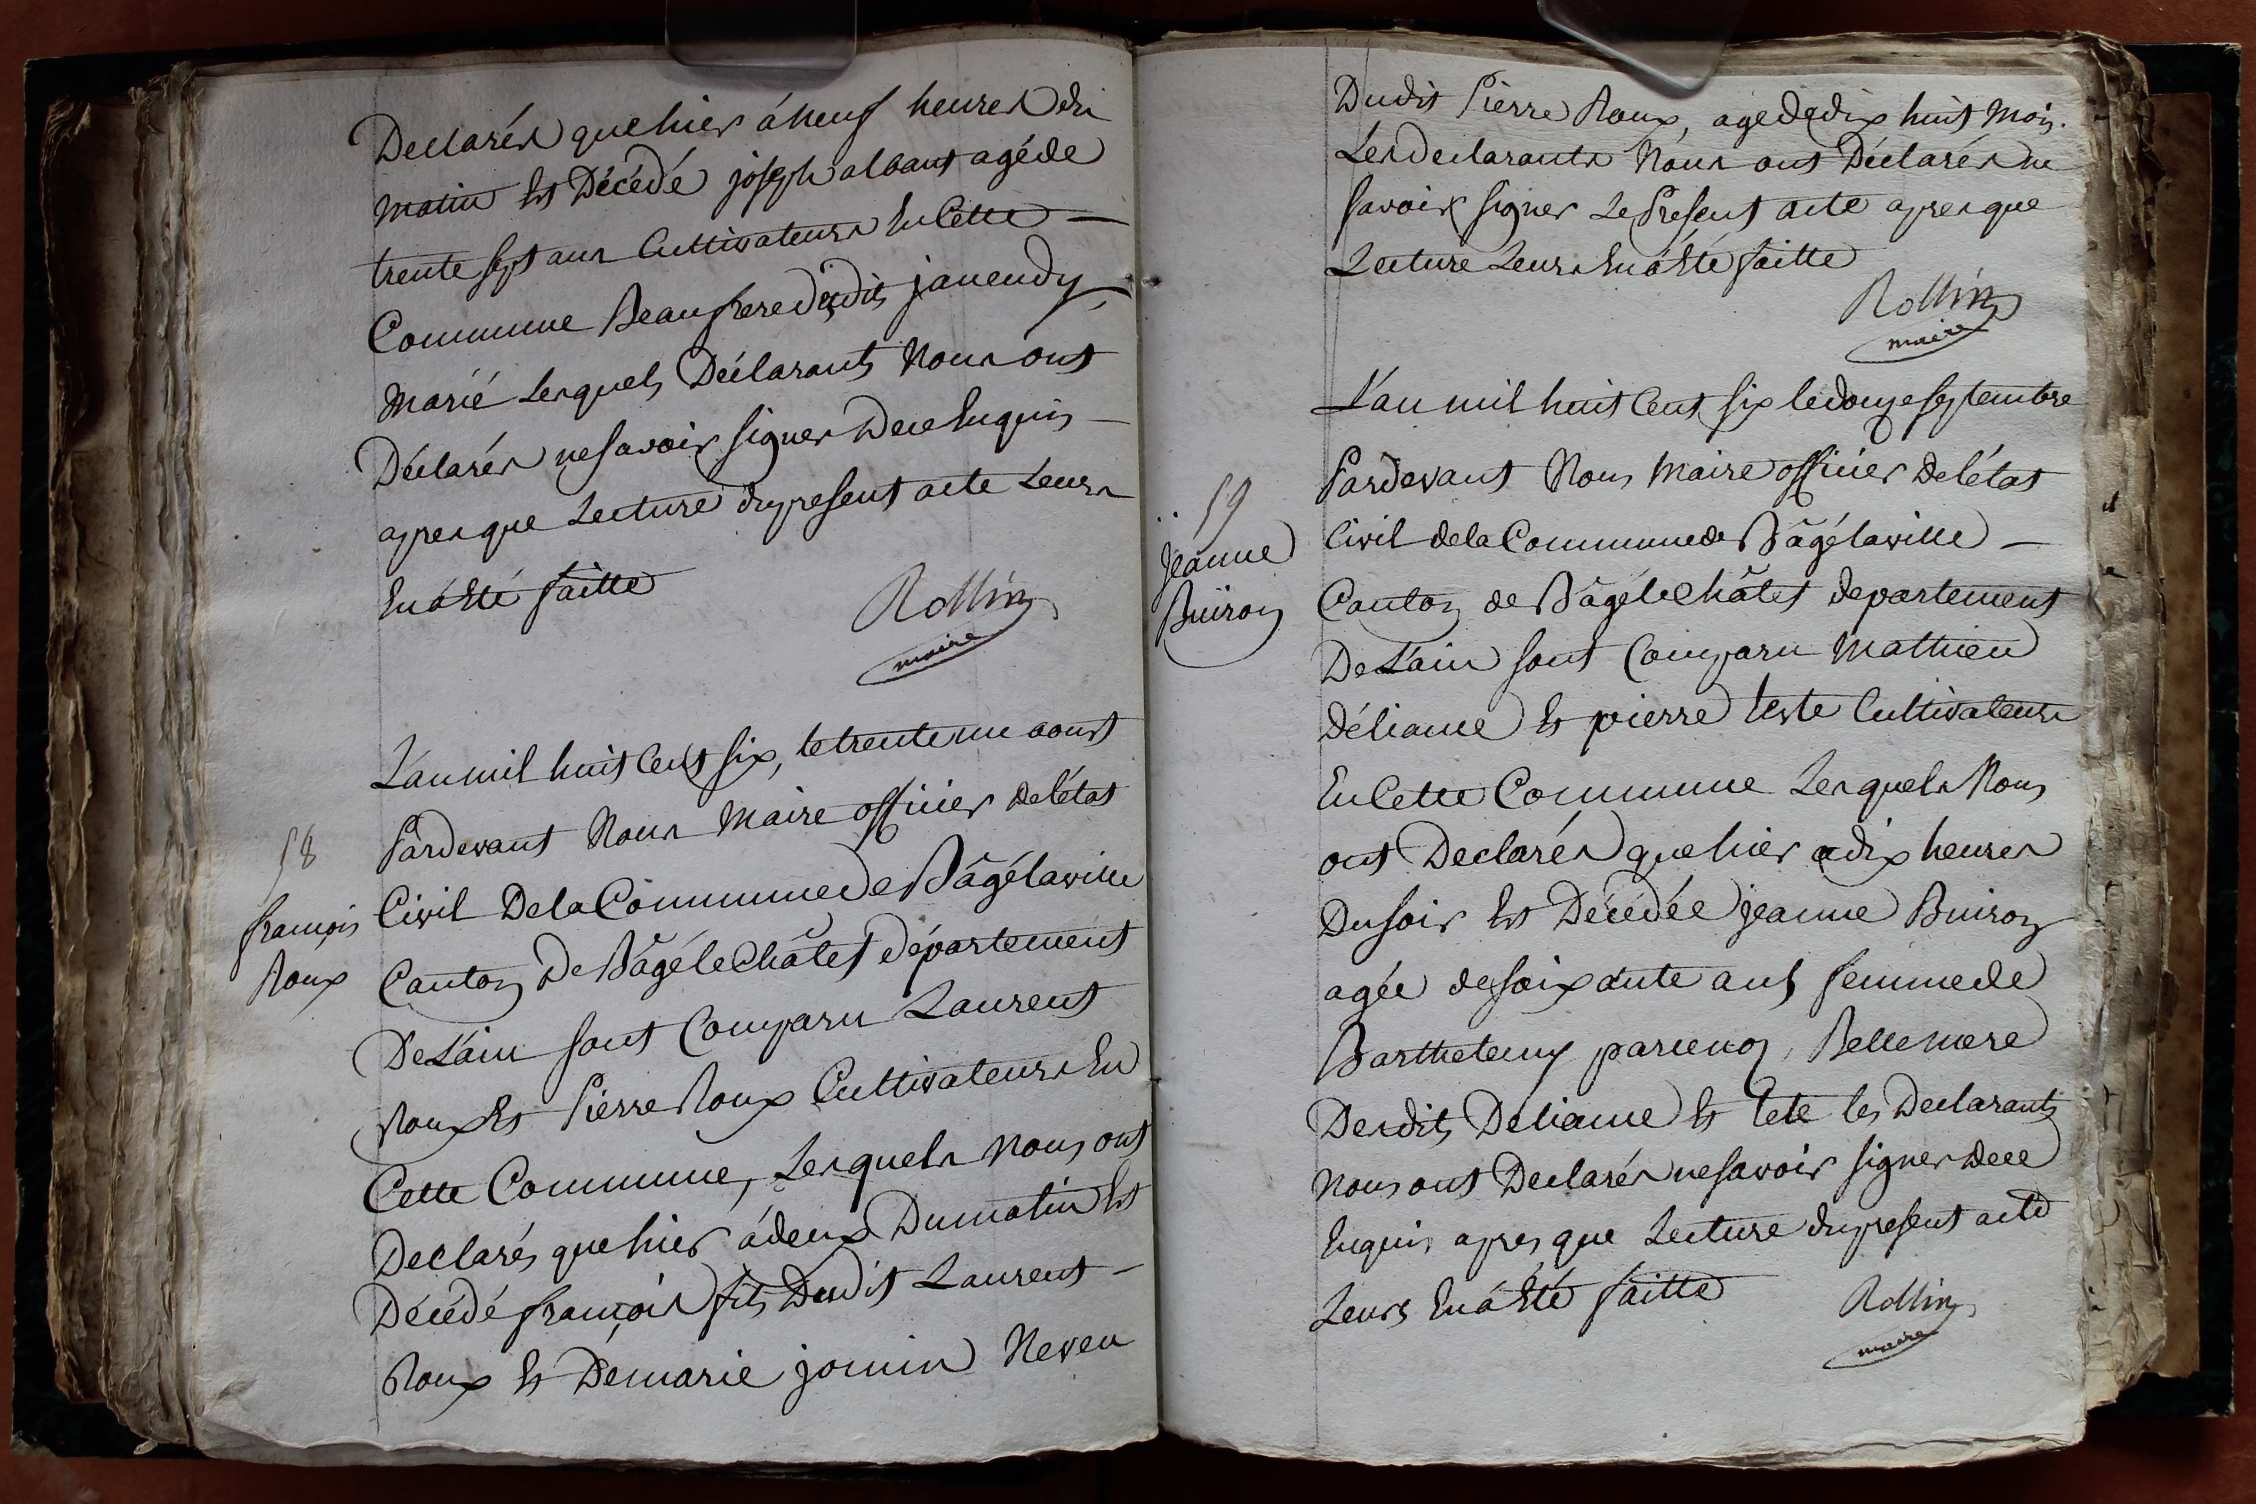 Declarés que hier á neuf heures du
matin Est Décédé joseph albant agé de
trente sept ans Cultivateurs En Cette —
Commune Beaufrere dudit javeudy
Marié Lesquels Déclarants Nous ont
Déclarés ne savoir signer De ce Enquis —
apres que Lecture du present acte Leurs
En á Eté faitte
Rollin
maire
L'an mil huit Cent six, le trente un aoust
Pardevant Nous Maire officier de l'état
58
françois
Roux
Civil De la Commune de Bâgé la ville
Canton De Bâgé le Châtel département
De L'ain sont Comparu Laurent
Roux Et Pierre Roux Cultivateurs En
Cette Commune, Lesquels Nous ont
Declarés que hier á deux Du matin Est
Décédé françois fils Dudit Laurent —
Roux Et De marie jomin Neveu
Dudit Pierre Roux, agé de dix huit mois.
Les declarants Nous ont Déclarés ne
savoir signer Le Present acte apres que
Lecture Leurs En á Eté faitte
Rollin
maire
L'an mil huit Cent six le douze septembre
Pardevant Nous Maire officier de l'état
59
jeanne
Buiron
Civil de la Commune de Bâgé la ville —
Canton de Bâgé le Châtel departement
De L'ain sont Comparu Mathieu
Déliance Et pierre teste Cultivateurs
En Cette Commune Lesquels Nous
ont Declarés que hier a dix heures
Du soir Est Décédée jeanne Buiron
agée de soixante ans femme de
Barthelemy Belle mere
Desdits Deliance Et tete les Declarants
Nous ont Declarés ne savoir signer De ce
Enquis apres que Lecture du present acte
Leurs En á Eté faitte
Rollin
maire